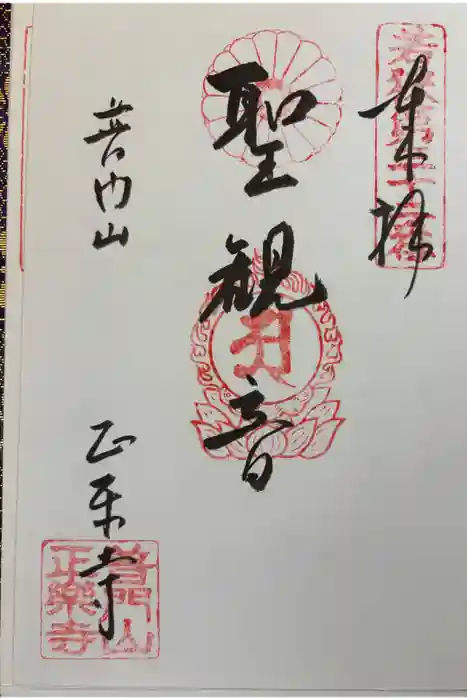 奉拝
聖観音
普門山
正楽寺
普門山
正樂寺